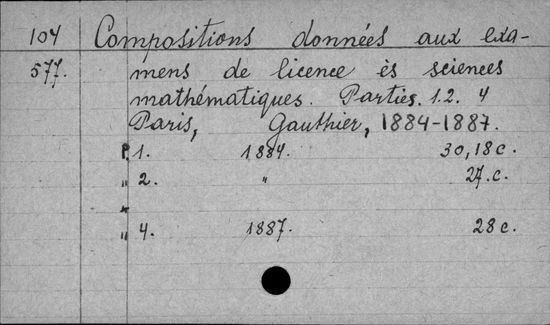 104 Compositions données aux exa-
577. mens de licence ès sciences
mathématiques. Parties. 1.2. 4
Paris, Gauthier, 1884-1887.
P. 1. 1884. 30,18 c.
„ 2. „ 27. c.
„ 4. 1887. 28 c.